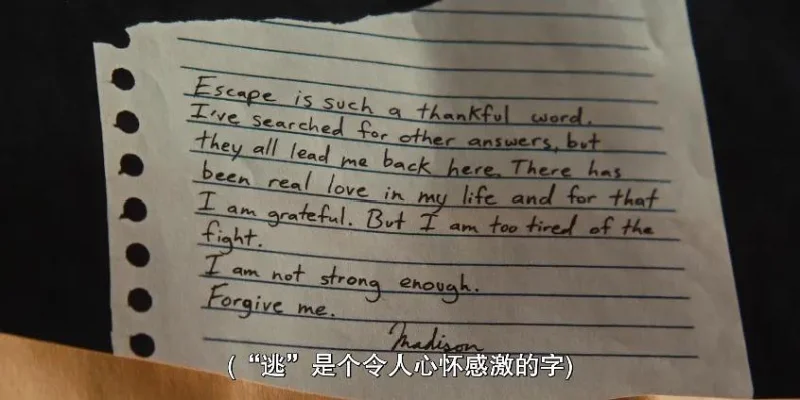 Escape is such a thankful word.
I've searched for other answers, but
they all lead me back here. There has
been real love in my life and for that
I am grateful. But I am too tired of the
fight.
I am not strong enough.
Forgive me.
Madison
(“逃”是个令人心怀感激的字)